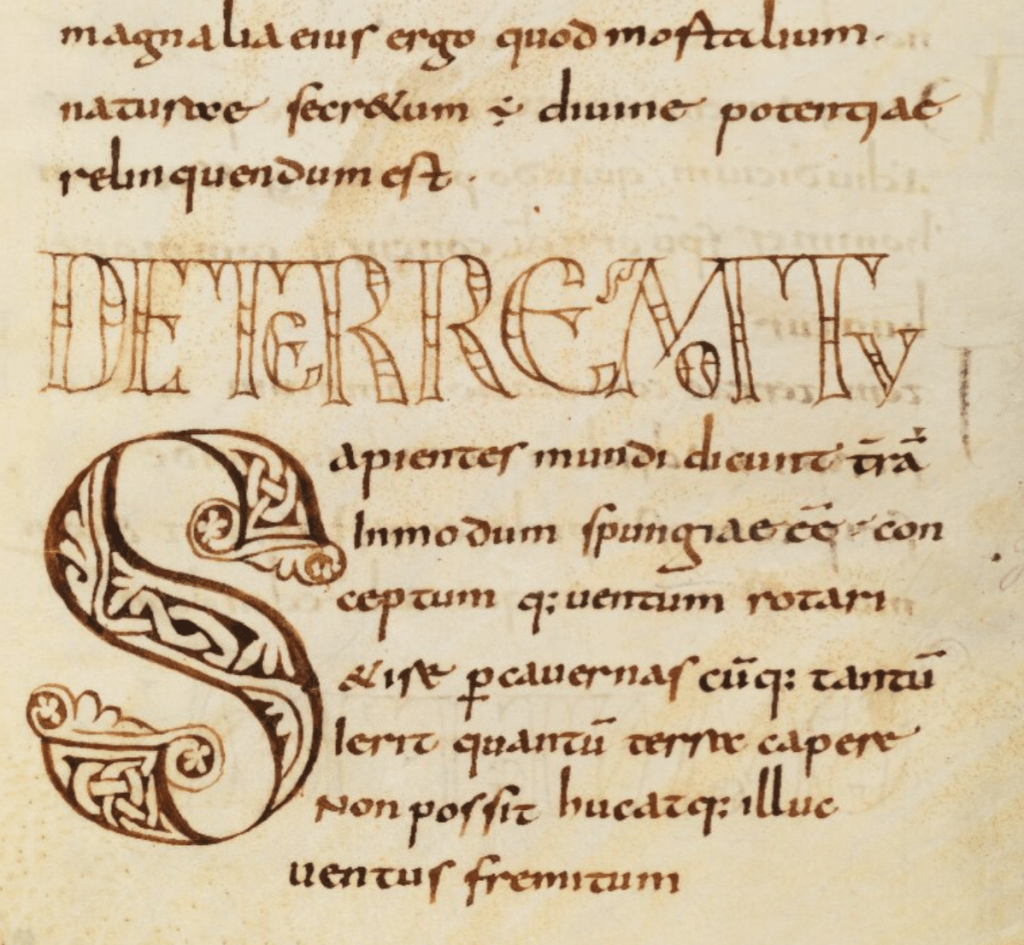 magnalia eius ergo quod mostalium.
naturae secretum ÷ divine potentiae
relinquendum est.
DE TERRE MOTU
Sapientes mundi dicunt trā
In modum spungiae eē con
ceptum q; uentum rotari
& ire p cauernas cūq; tantū
ierit quantū terrae capere
Non possit huc atq; illuc
uentus fremitum